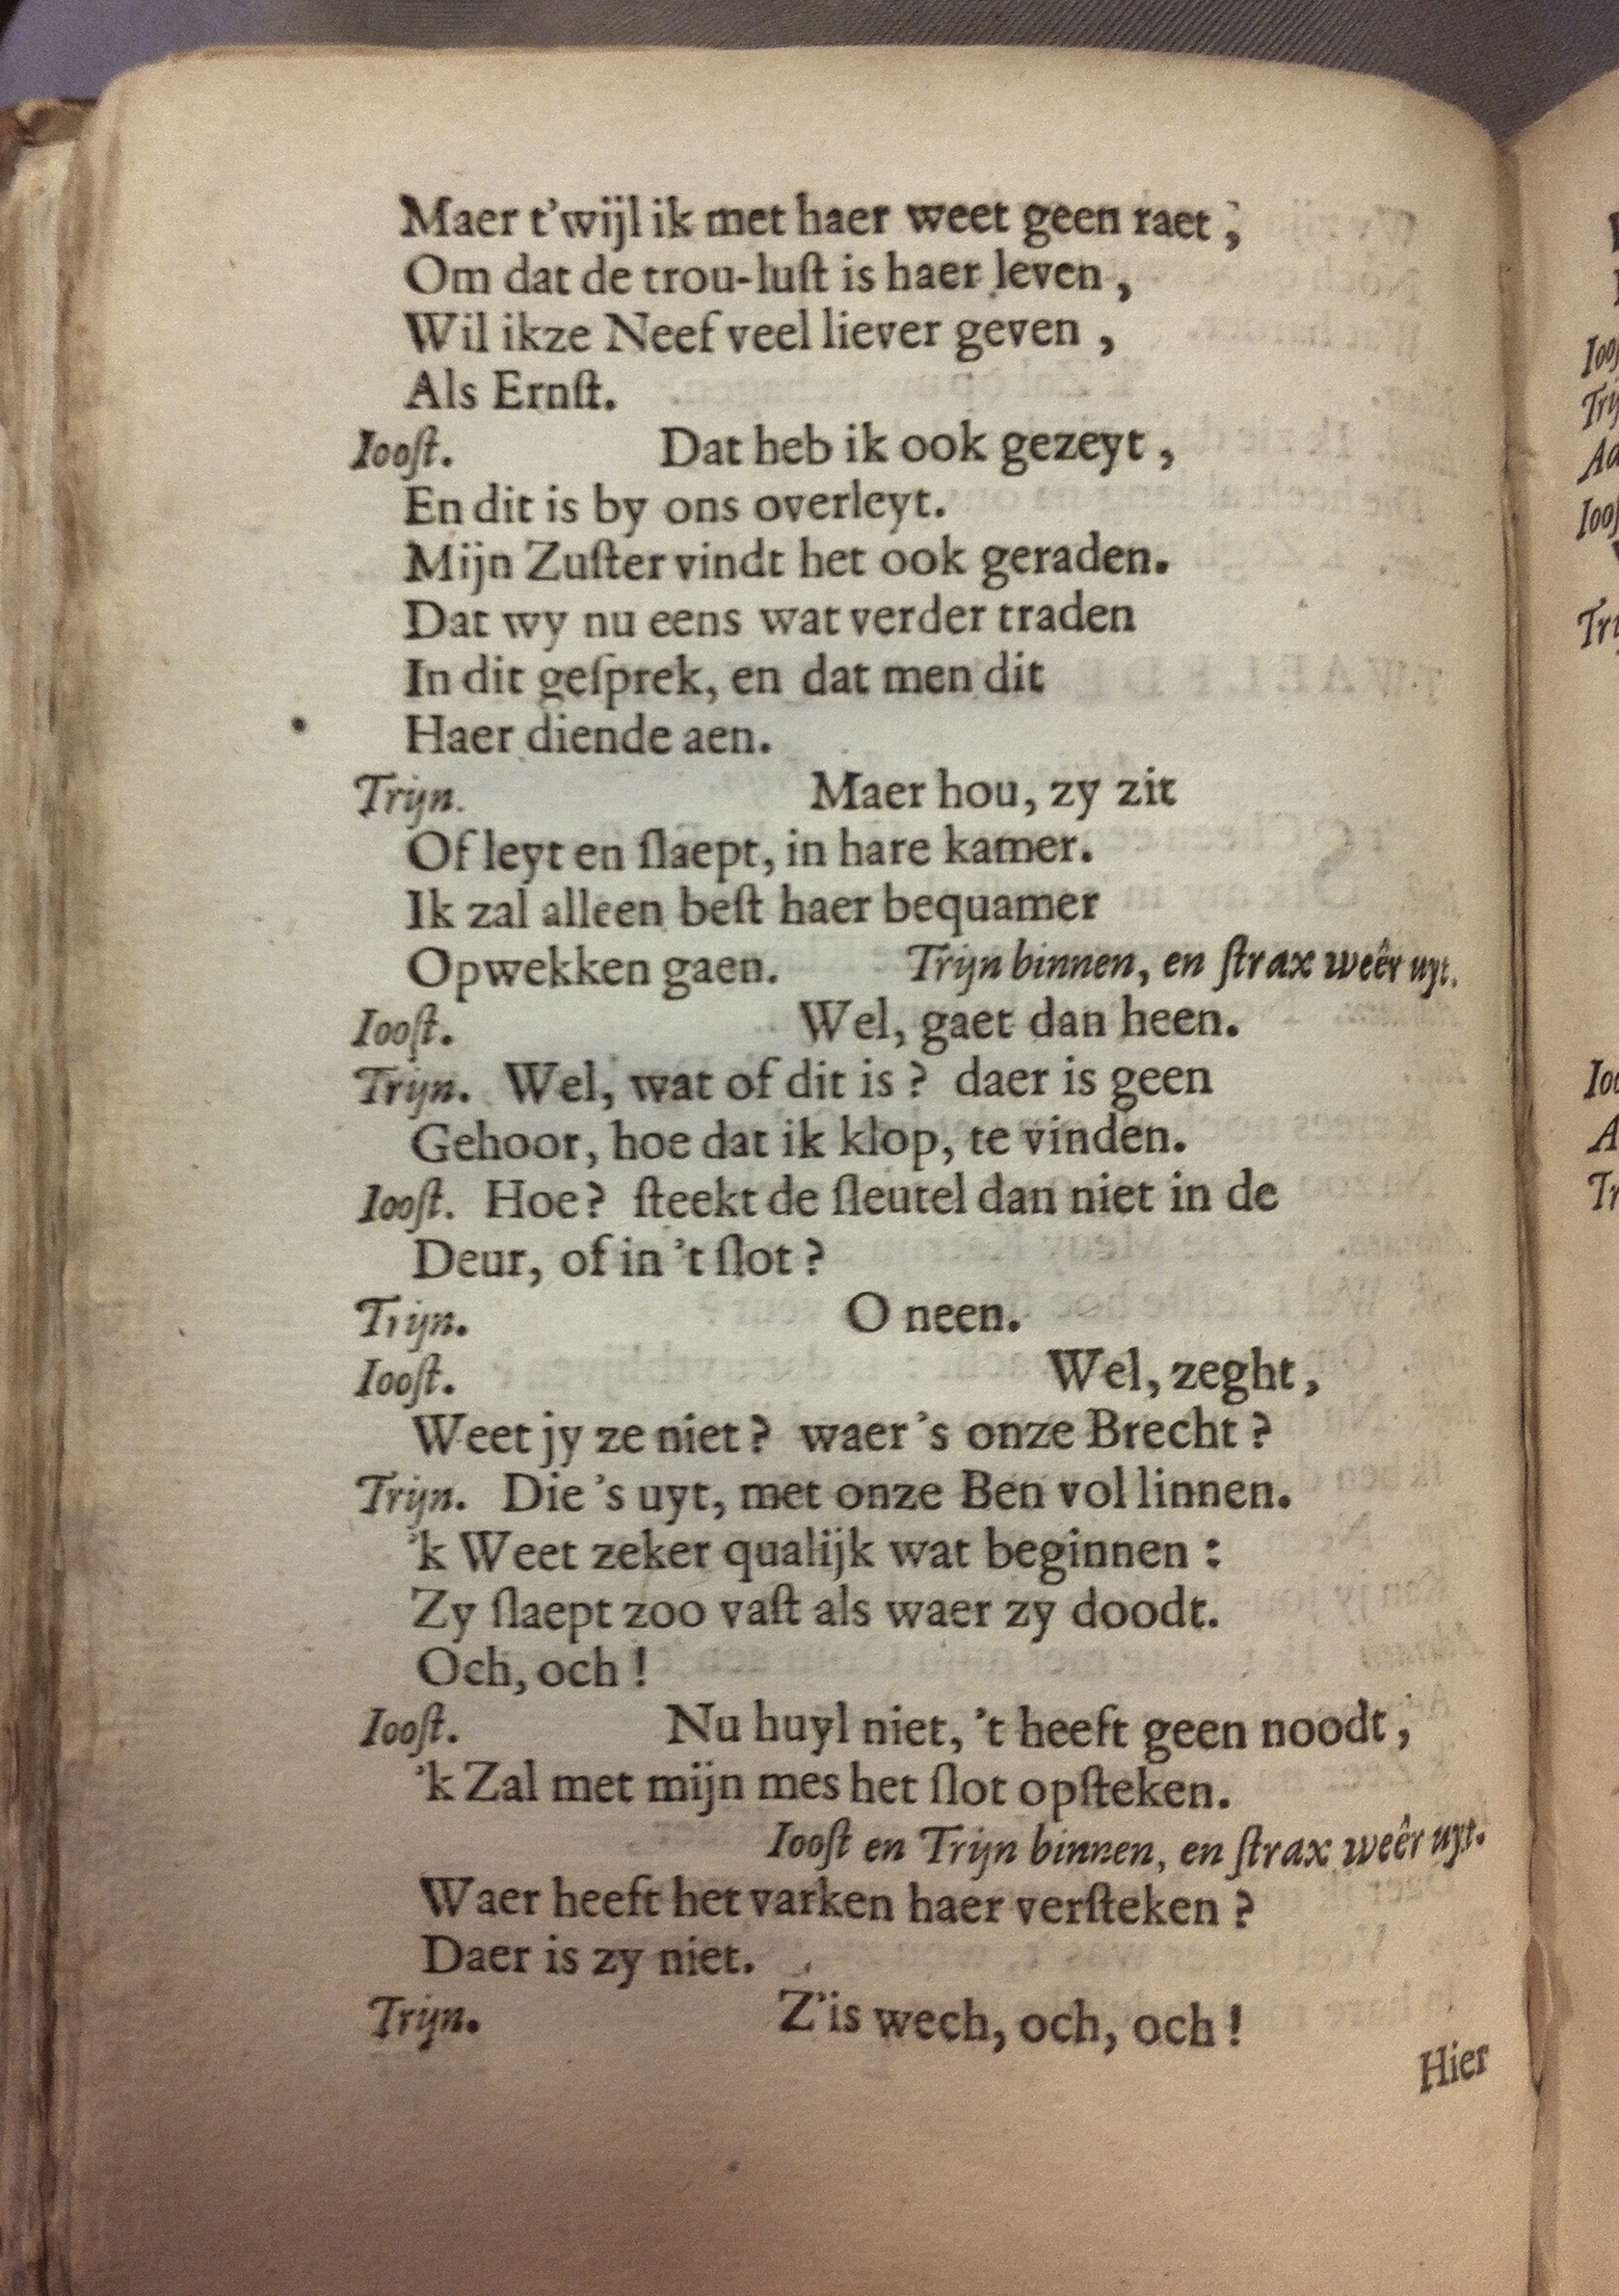 Maer t'wijl ik met haer weet geen raet,
Om dat de trou-luſt is haer leven,
Wil ikze Neef veel liever geven,
Als Ernſt.
Iooſt. Dat heb ik ook gezeyt,
En dit is by ons overleyt.
Mijn Zuſter vindt het ook geraden.
Dat wy nu eens wat verder traden
In dit geſprek, en dat men dit
Haer diende aen.
Trijn. Maer hou, zy zit
Of leyt en ſlaept, in hare kamer.
Ik zal alleen beſt haer bequamer
Opwekken gaen. Trijn binnen, en ſtrax weêr uyt.
Iooſt. Wel, gaet dan heen.
Trijn. Wel, wat of dit is? daer is geen
Gehoor, hoe dat ik klop, te vinden.
Iooſt. Hoe? ſteekt de ſleutel dan niet in de
Deur, of in 't ſlot?
Trijn. O neen.
Iooſt. Wel, zeght,
Weet jy ze niet? waer 's onze Brecht?
Trijn. Die 's uyt, met onze Ben vol linnen.
'k Weet zeker qualijk wat beginnen:
Zy ſlaept zoo vaſt als waer zy doodt.
Och, och!
Iooſt. Nu huyl niet, 't heeft geen noodt,
'k Zal met mijn mes het ſlot opſteken.
Iooſt en Trijn binnen, en ſtrax weêr uyt.
Waer heeft het varken haer verſteken?
Daer is zy niet.
Trijn. Z'is wech, och, och!
Hier